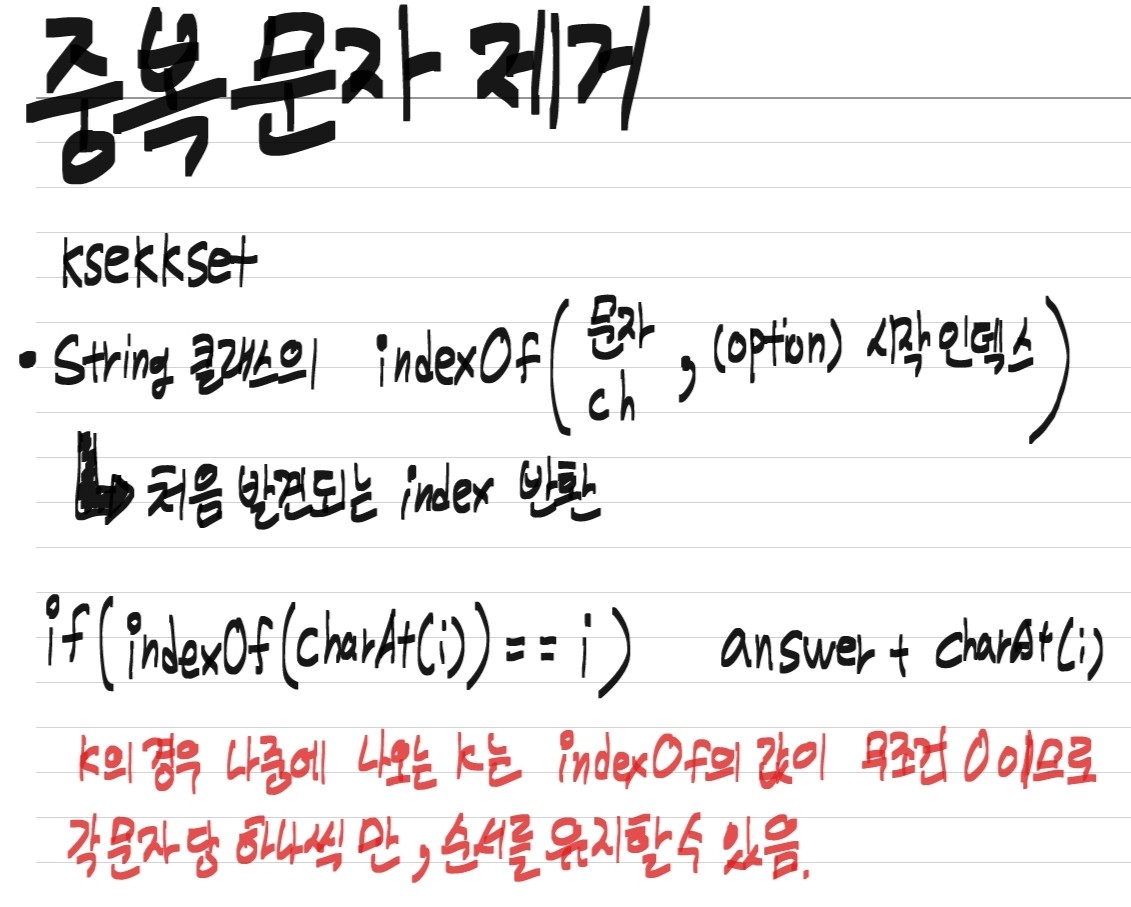 중복문자 제거
ksekkset
• String 클래스의 indexOf(문자 ch, (option) 시작인덱스)
↳ 처음 발견되는 index 반환
if(indexOf(charAt(i))==i) answer + charAt(i)
k의 경우 나중에 나오는 k는 indexOf의 값이 무조건 0이므로
각 문자당 하나씩만, 순서를 유지할 수 있음.